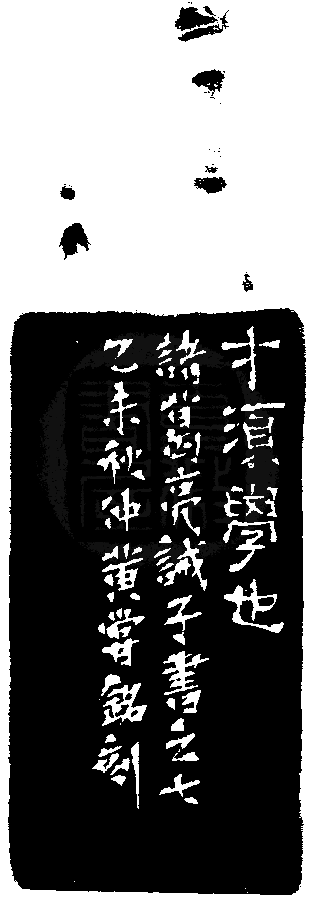 才須學也
諸葛亮誡子書之七
乙未秋仲黄嘗銘刻